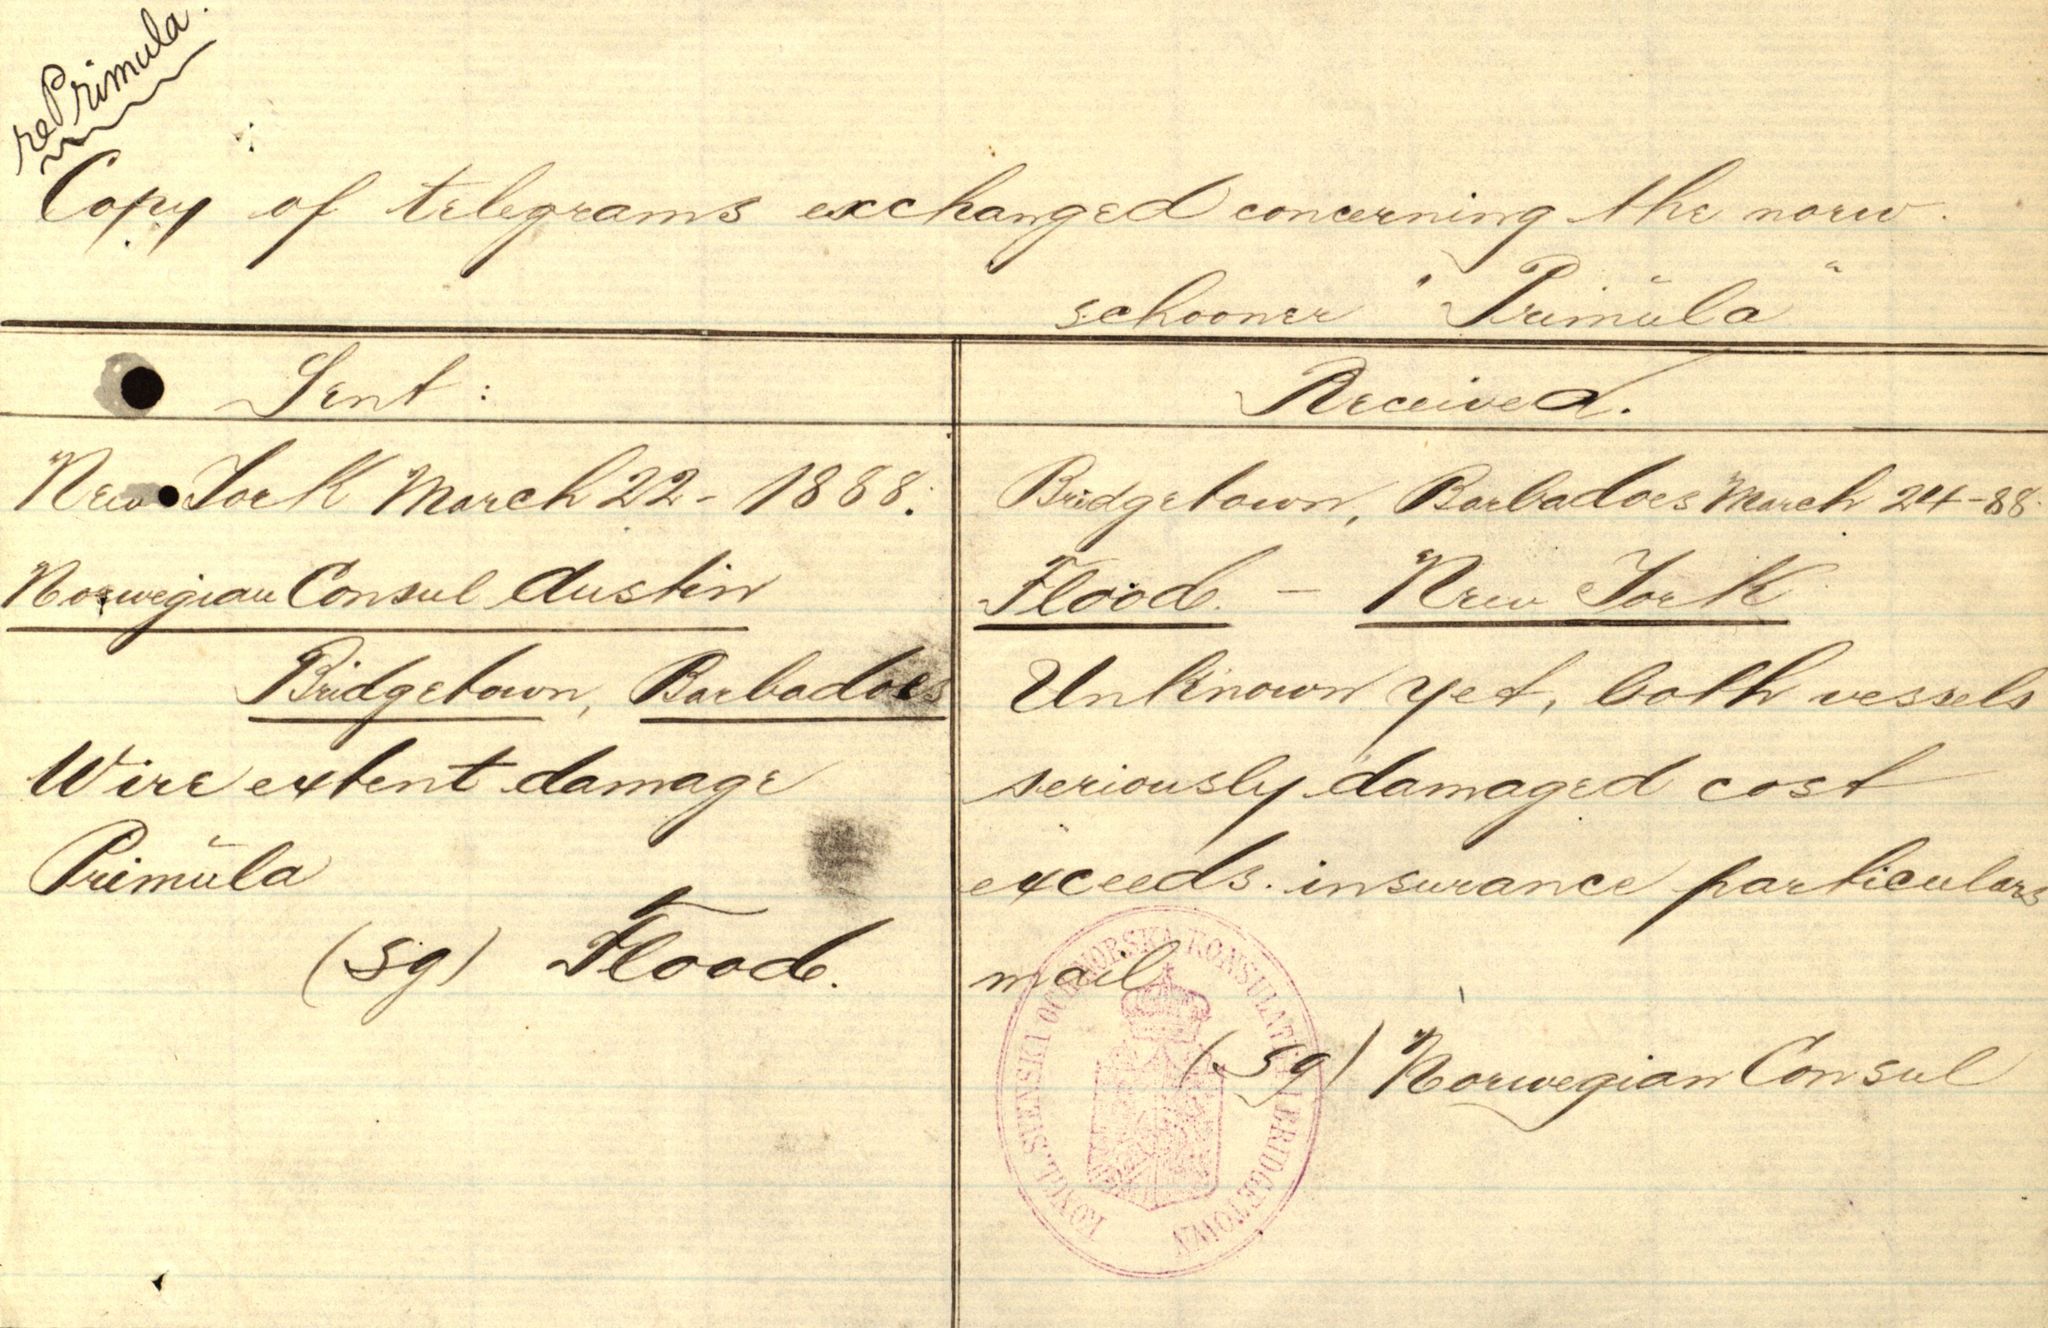 re Primula.
Copy of telegrams exchanged concerning the norw.
schooner "Primŭla"
Sent:
New York March 22 - 1888.
Norwegian Consul Austin
Bridgetown, Barbadoes
Wire extent damage
Primŭla
(sg) Flood.
Received.
Bridgetown, Barbadoes March 24 - 88.
Flood. - New York
Unknown yet, both vessels
seriously damaged cost
exceeds. insurance particulars
mail
(sg) Norwegian Consul
KONGL. SVENSKA OCH NORSKA KONSULATET I BRIDGETOWN